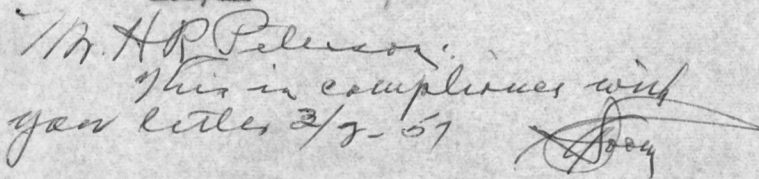 Mr. H R Peterson.
This in compliance with
your letter 3/8-57